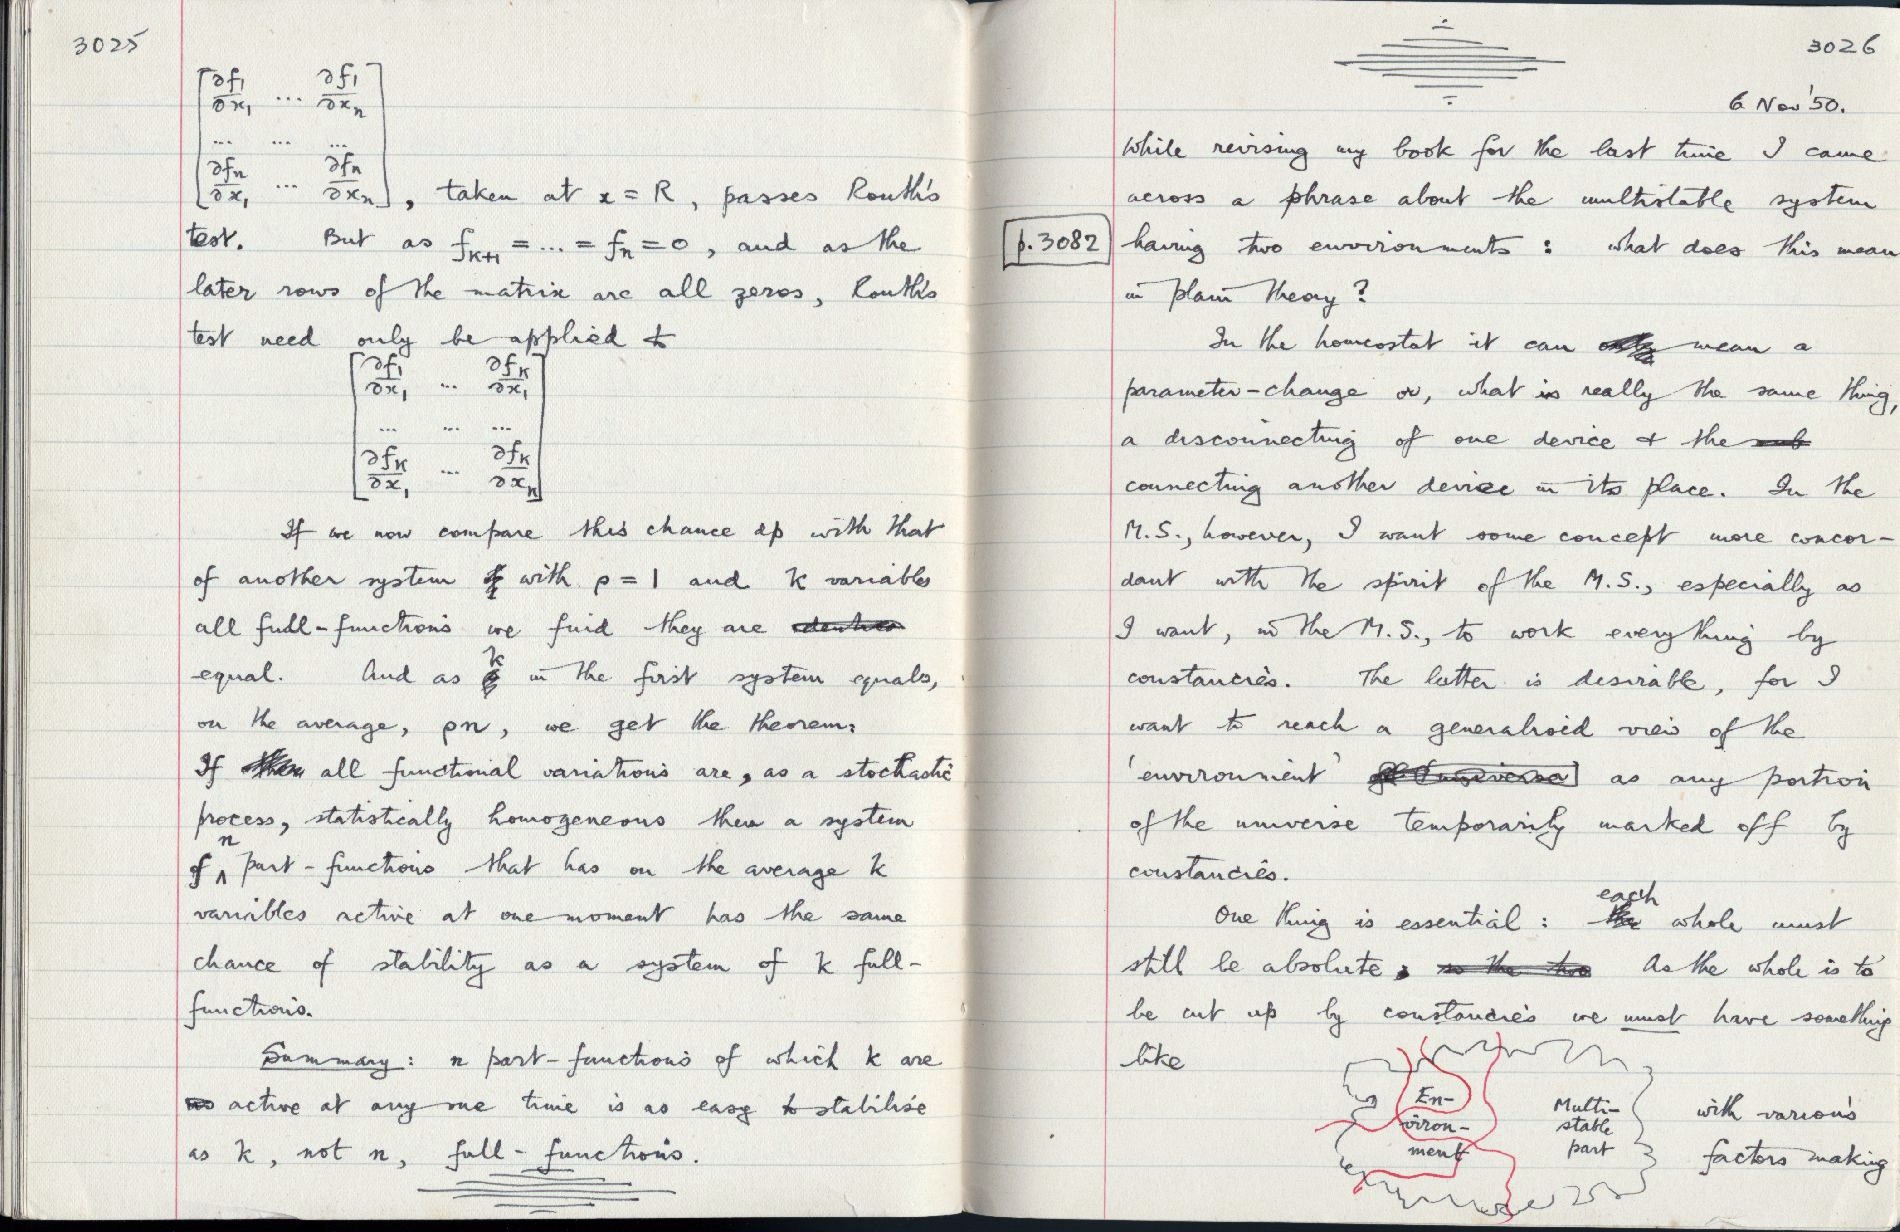 3025
[∂f₁/∂x₁ ... ∂f₁/∂xₙ]
... ... ...
[∂fₙ/∂x₁ ... ∂fₙ/∂xₙ], taken at x = R, passes Routh's
test. But as fₖ₊₁ = ... = fₙ = 0, and as the
later rows of the matrix are all zeros, Routh's
test need only be applied to
[∂f₁/∂x₁ ... ∂fₖ/∂x₁]
... ... ...
[∂fₖ/∂x₁ ... ∂fₖ/∂xₙ]
If we now compare this chance dp with that
of another system with p = 1 and k variables
all full-functions we find they are
equal. And as k in the first system equals,
on the average, pn, we get the theorem:
If all functional variations are, as a stochastic
process, statistically homogeneous then a system
of n part-functions that has on the average k
variables active at one moment has the same
chance of stability as a system of k full-
functions.
Summary: n part-functions of which k are
active at any one time is as easy to stabilise
as k, not n, full-functions.
3026
6 Nov '50.
While revising my book for the last time I came
across a phrase about the multistable system
p.3082 having two environments: what does this mean
in plain theory?
In the homeostat it can mean a
parameter-change or, what is really the same thing,
a disconnecting of one device & the
connecting another device in its place. In the
M.S., however, I want some concept more concor-
dant with the spirit of the M.S., especially as
I want, in the M.S., to work everything by
constancies. The latter is desirable, for I
want to reach a generalised view of the
'environment' as any portion
of the universe temporarily marked off by
constancies.
One thing is essential: each whole must
still be absolute. As the whole is to
be cut up by constancies we must have something
like
En-
viron-
ment
Multi-
stable
part
with various
factors making